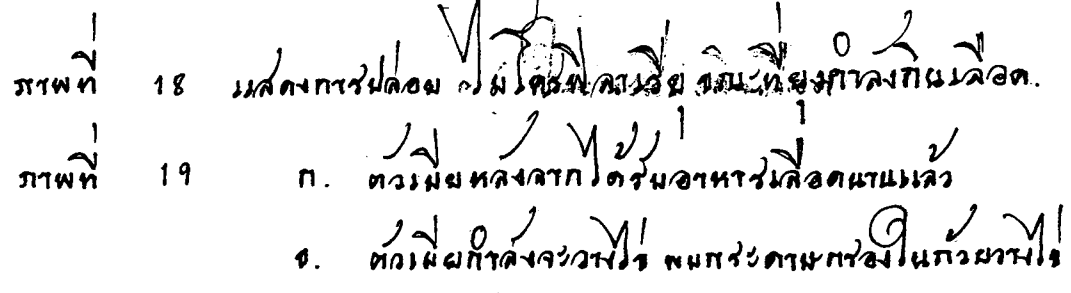 ภาพที่ 18 แสดงการปล่อย ไมโครฟิลาเรีย ขณะที่ยุงกำลังกินเลือด.
ภาพที่ 19 ก. ตัวเมียหลังจากได้รับอาหารเลือดนานแล้ว
ข. ตัวเมียกำลังจะวางไข่ บนกระดาษกรองในถ้วยวางไข่